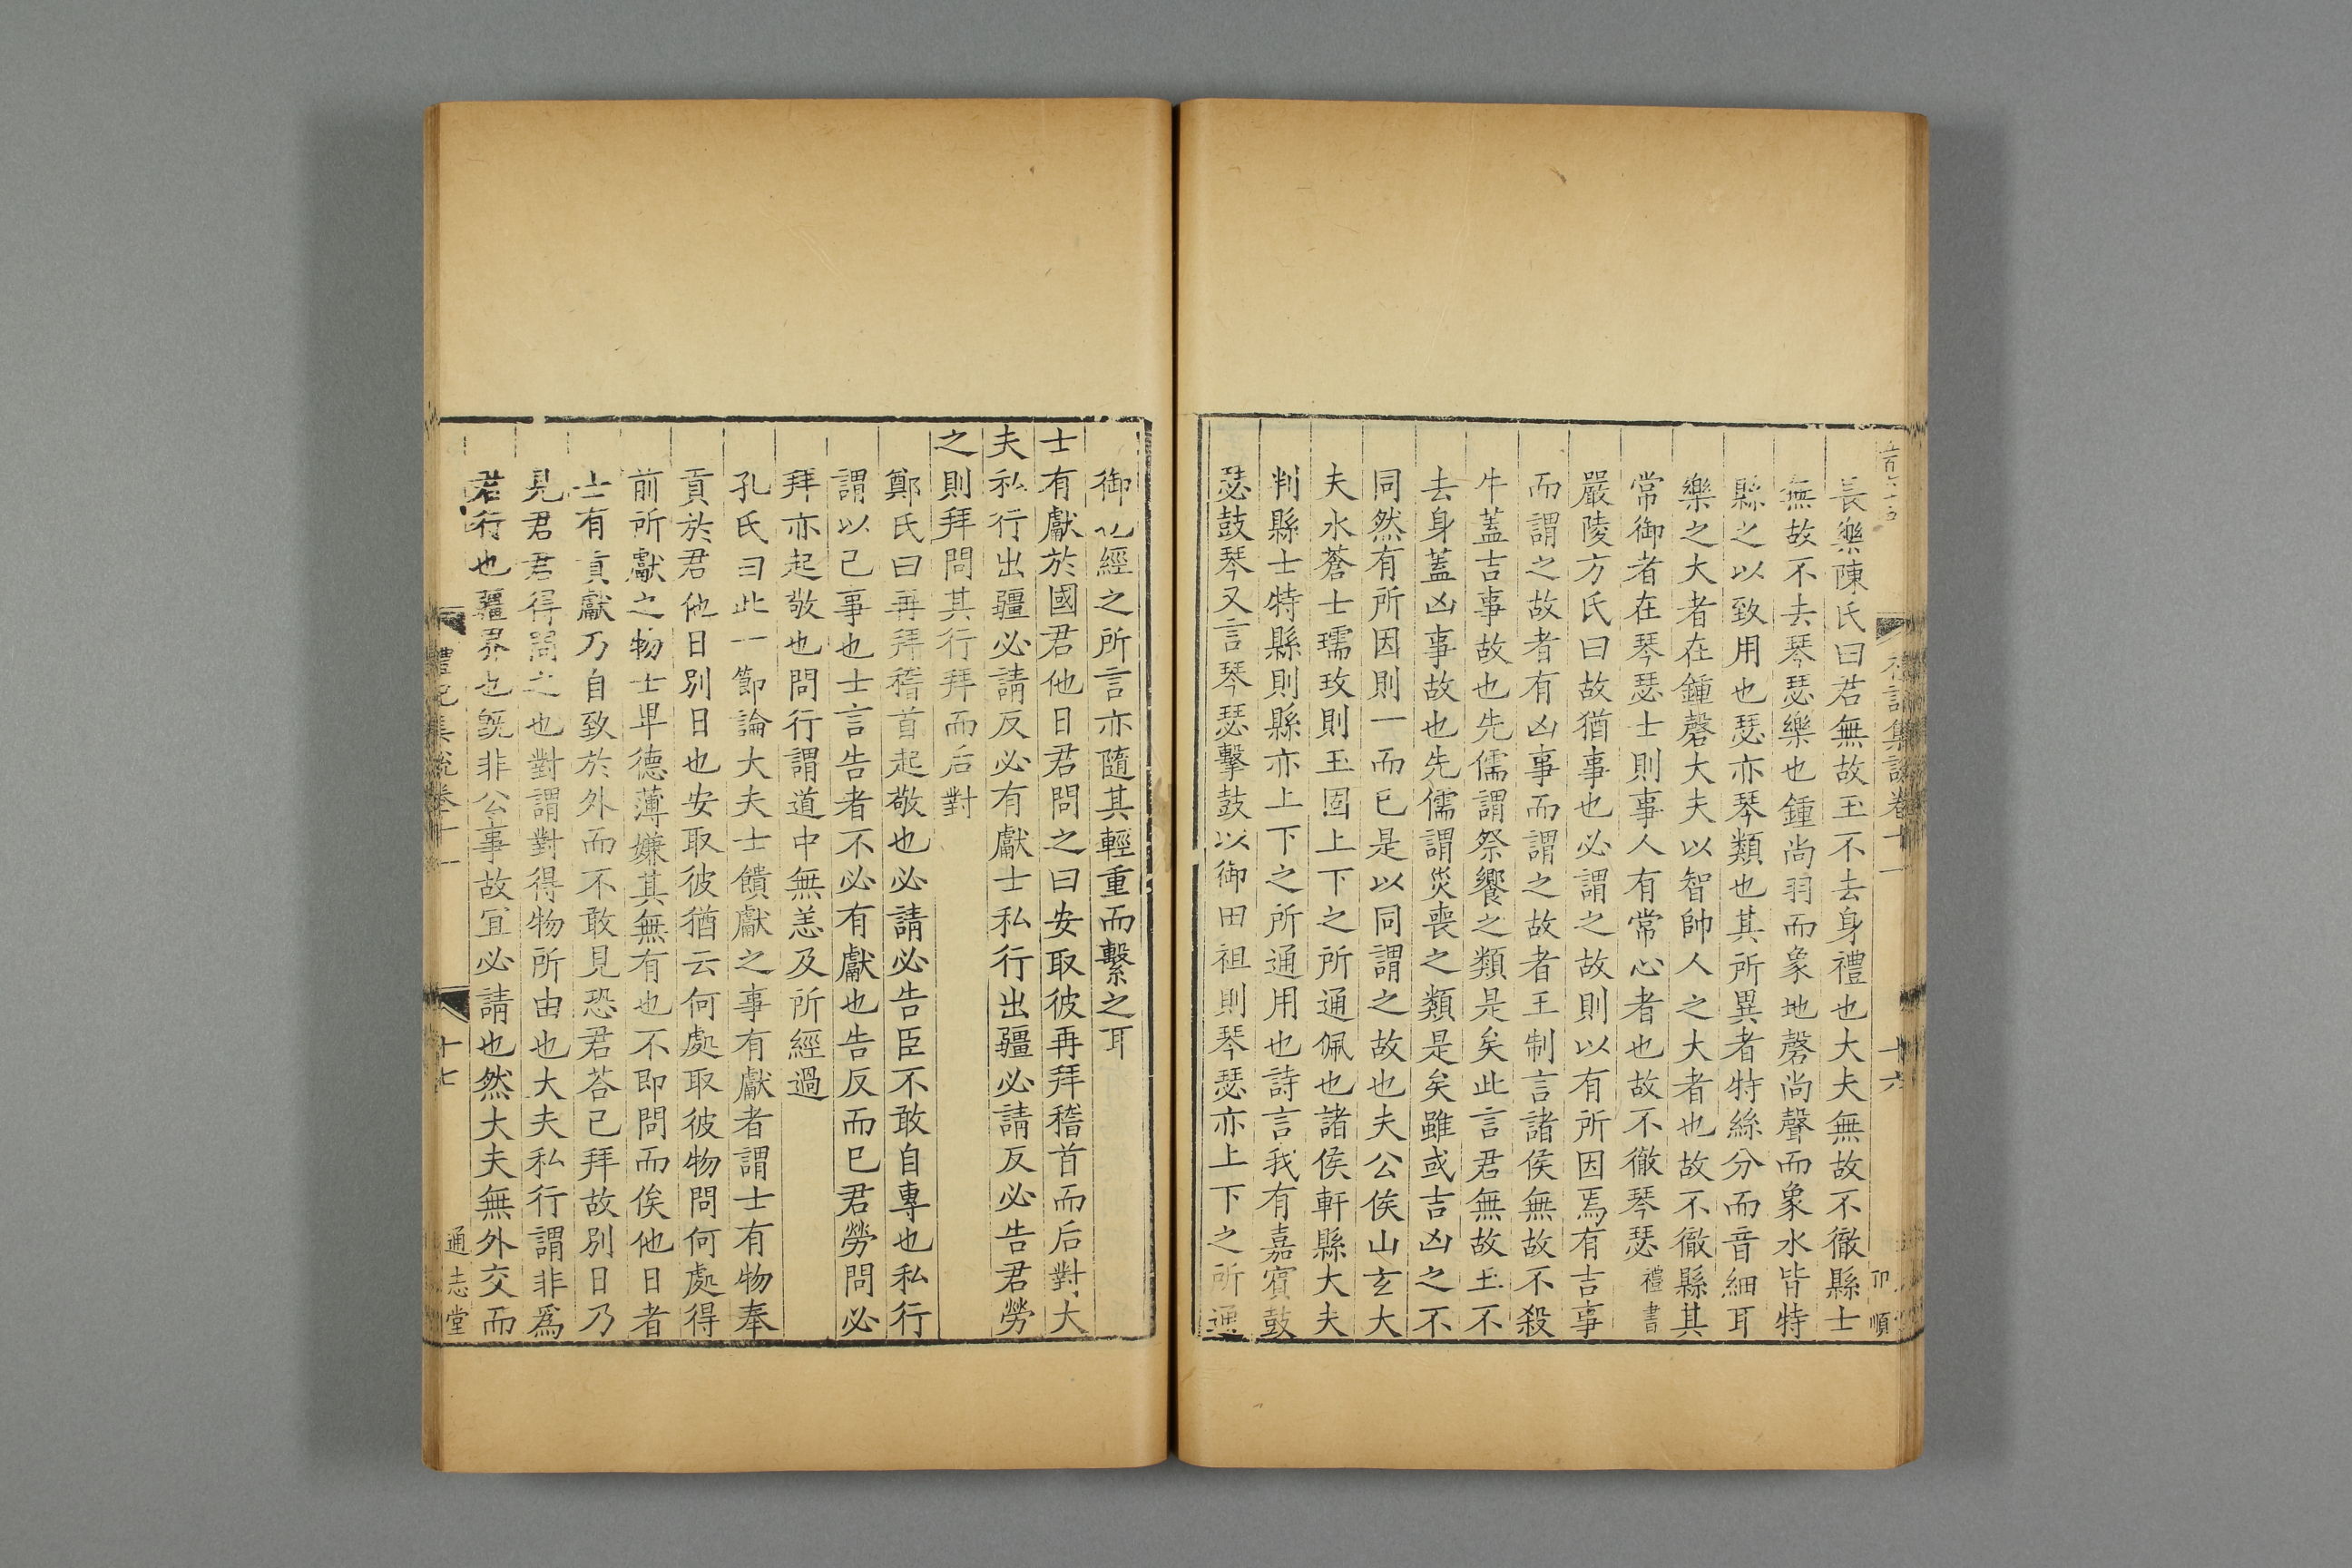 長樂陳氏曰君無故玉不去身禮也大夫無故不徹縣士
無故不去琴瑟樂也鍾尚羽而象地磬尚聲而象水皆特
縣之以致用也瑟亦琴類也其所異者特絲分而音細耳
樂之大者在鍾磬大夫以智帥人之大者也故不徹縣其
常御者在琴瑟士則事人有常心者也故不徹琴瑟禮書
嚴陵方氏曰故猶事也必謂之故則以有所因焉有吉事
而謂之故者有凶事而謂之故者王制言諸侯無故不殺
牛蓋吉事故也先儒謂祭饗之類是矣此言君無故玉不
去身蓋凶事故也先儒謂災喪之類是矣雖或吉凶之不
同然有所因則一而已是以同謂之故也夫公侯山玄大
夫水蒼士瓀玫則玉固上下之所通佩也諸侯軒縣大夫
判縣士特縣則縣亦上下之所通用也詩言我有嘉賓鼓
瑟鼓琴又言琴瑟擊鼓以御田祖則琴瑟亦上下之所通
禮記集說卷十一
十六
順
御也經之所言亦隨其輕重而繫之耳
士有獻於國君他日君問之曰安取彼再拜稽首而后對大
夫私行出疆必請反必有獻士私行出疆必請反必告君勞
之則拜問其行拜而后對
鄭氏曰再拜稽首起敬也必請必告臣不敢自專也私行
謂以己事也士言告者不必有獻也告反而已君勞問必
拜亦起敬也問行謂道中無恙及所經過
孔氏曰此一節論大夫士饋獻之事有獻者謂士有物奉
貢於君他日別日也安取彼猶云何處取彼物問何處得
前所獻之物士卑德薄嫌其無有也不即問而俟他日者
士有貢獻乃自致於外而不敢見恐君荅己拜故別日乃
見君君得問之也對謂對得物所由也大夫私行謂非爲
君行也疆界也旣非公事故冝必請也然大夫無外交而
禮記集說卷十一
十七
通志堂